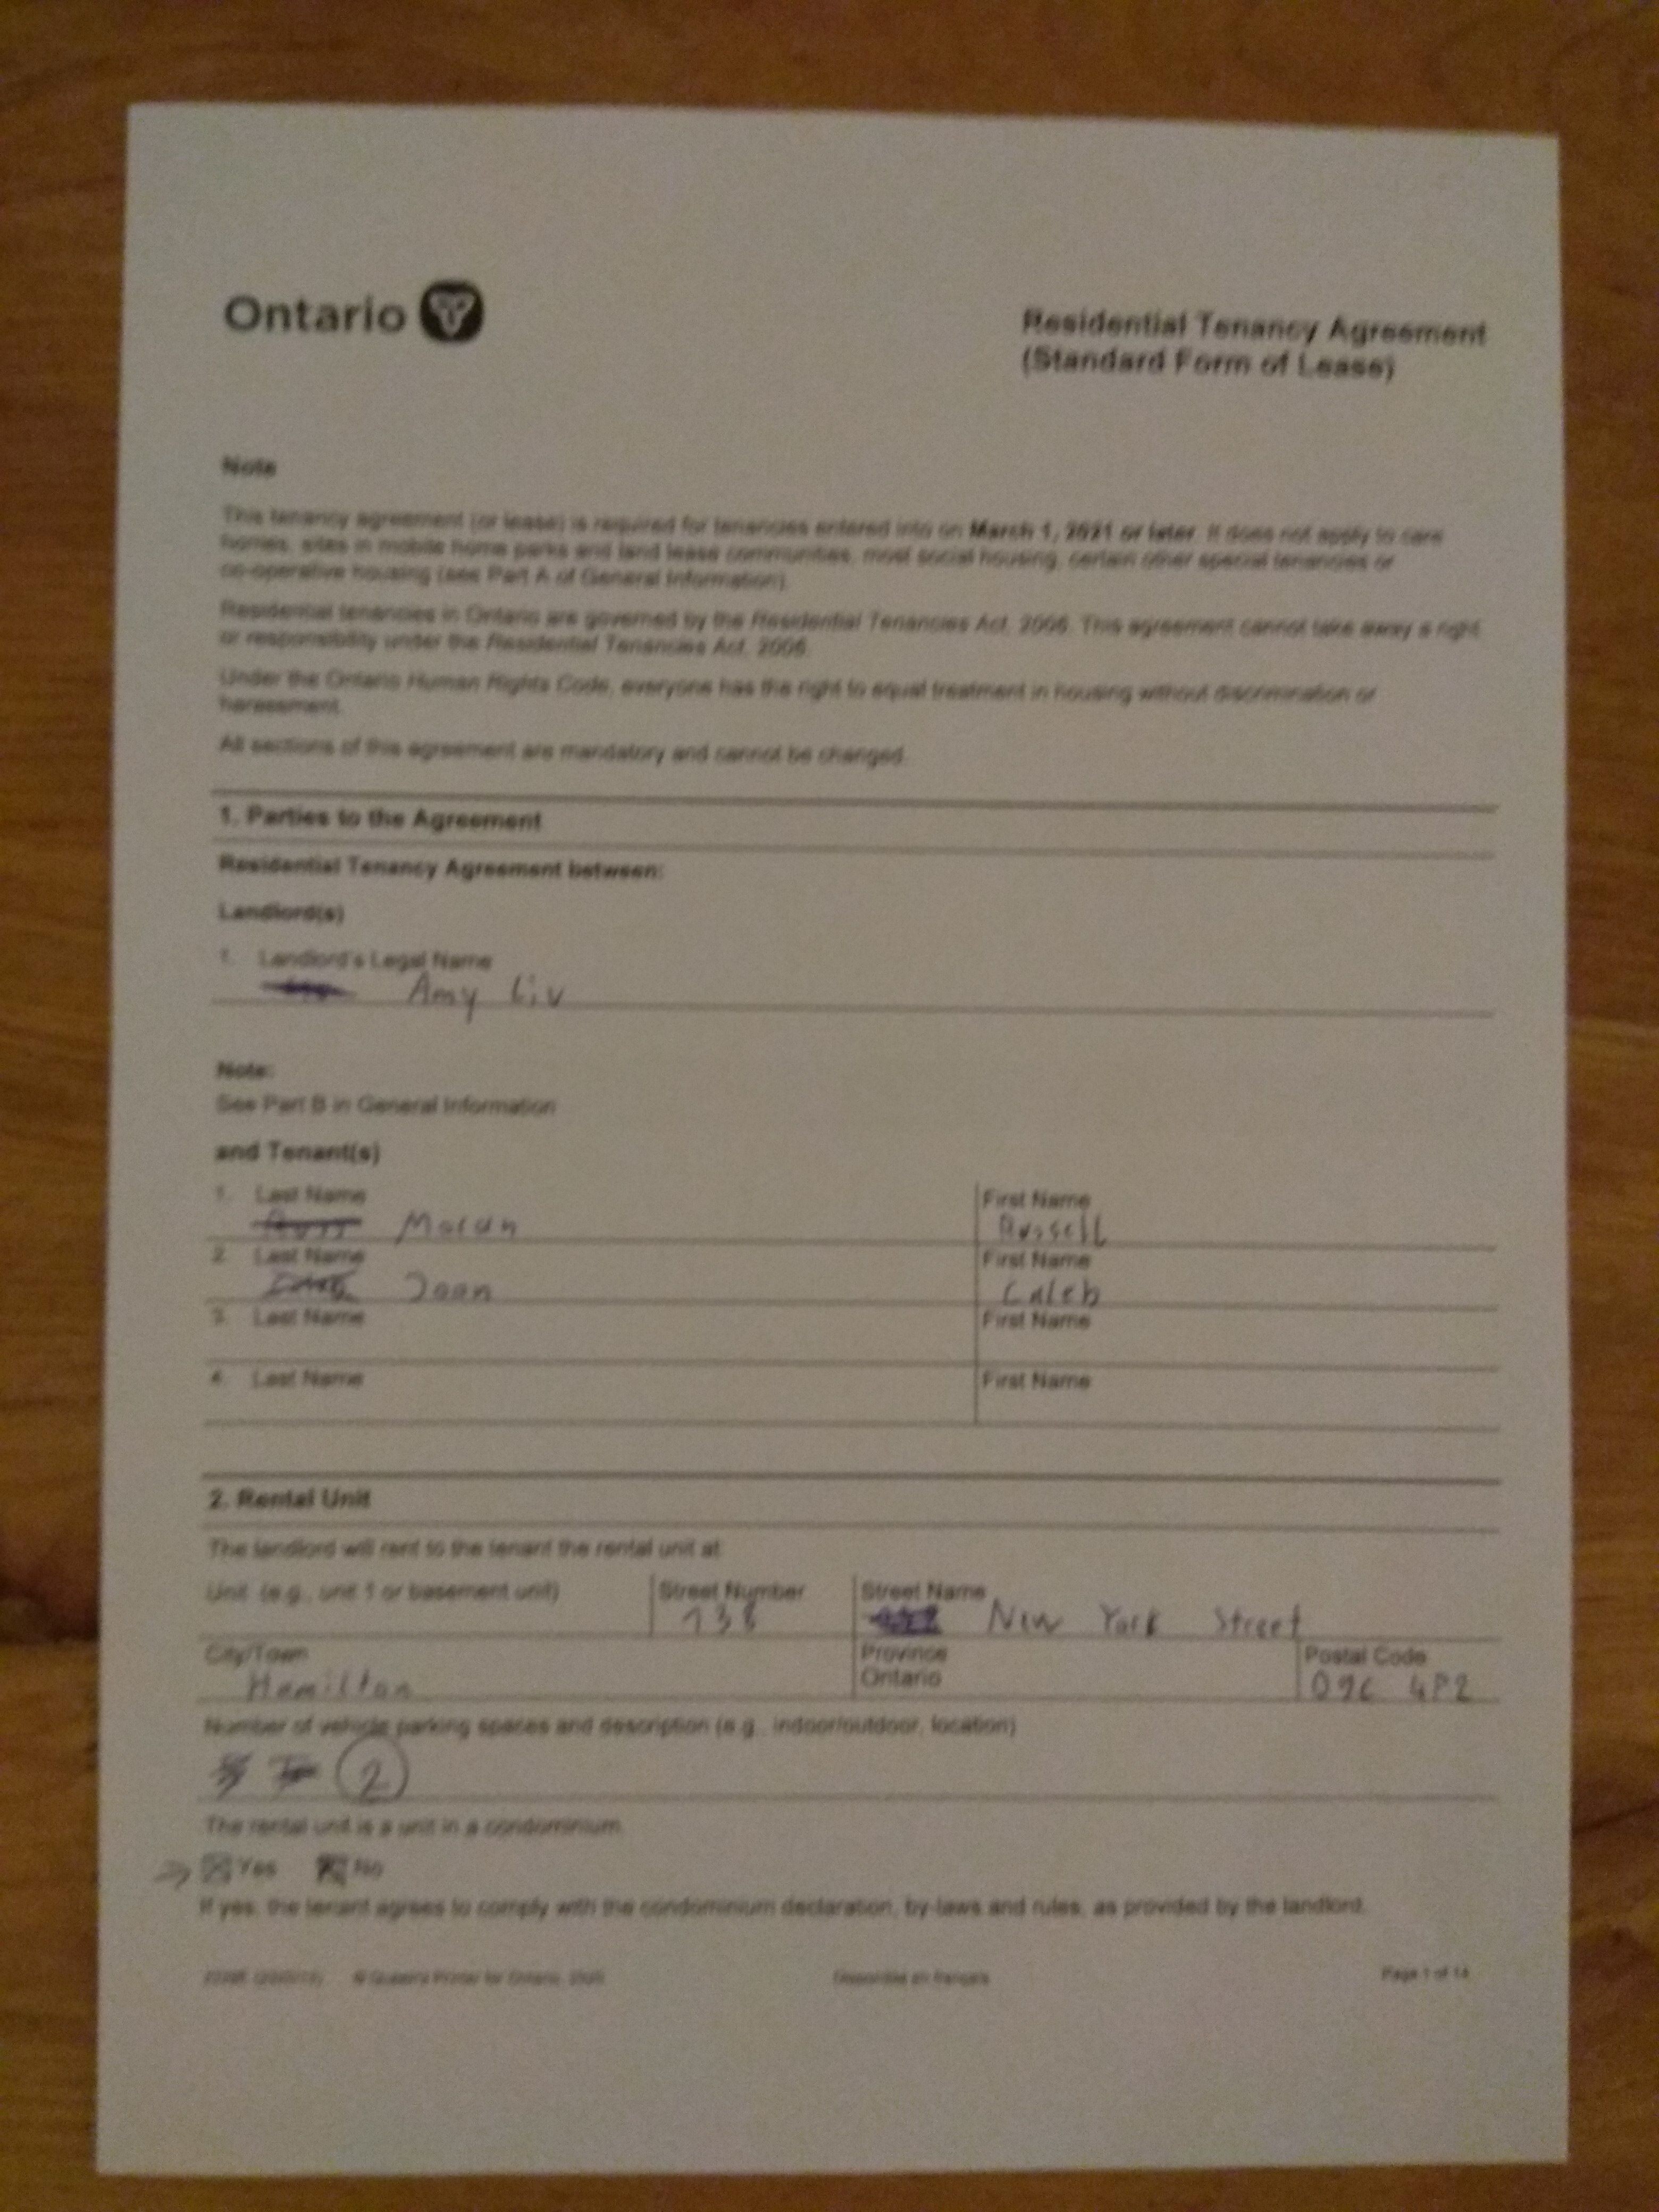 Ontario
Residential Tenancy Agreement
(Standard Form of Lease)
Note
This tenancy agreement (or lease) is required for tenancies entered into on March 1, 2021 or later. It does not apply to care
homes, sites in mobile home parks and land lease communities, most social housing, certain other special tenancies or
co-operative housing (see Part A of General Information).
Residential tenancies in Ontario are governed by the Residential Tenancies Act, 2006. This agreement cannot take away a right
or responsibility under the Residential Tenancies Act, 2006.
Under the Ontario Human Rights Code, everyone has the right to equal treatment in housing without discrimination or
harassment.
All sections of this agreement are mandatory and cannot be changed.
1. Parties to the Agreement
Residential Tenancy Agreement between:
Landlord(s)
1. Landlord's Legal Name
Amy Liv
Note:
See Part B in General Information
and Tenant(s)
1. Last Name First Name
Moran Russell
2. Last Name First Name
Joan Caleb
3. Last Name First Name
4. Last Name First Name
2. Rental Unit
The landlord will rent to the tenant the rental unit at:
Unit (e.g., unit 1 or basement unit) Street Number Street Name
138 New York Street
City/Town Province Postal Code
Hamilton Ontario 4P2
Number of vehicle parking spaces and description (e.g., indoor/outdoor, location)
2
The rental unit is a unit in a condominium.
Yes No
If yes, the tenant agrees to comply with the condominium declaration, by-laws and rules, as provided by the landlord.
© Queen's Printer for Ontario, 2020 Disponible en français Page 1 of 14